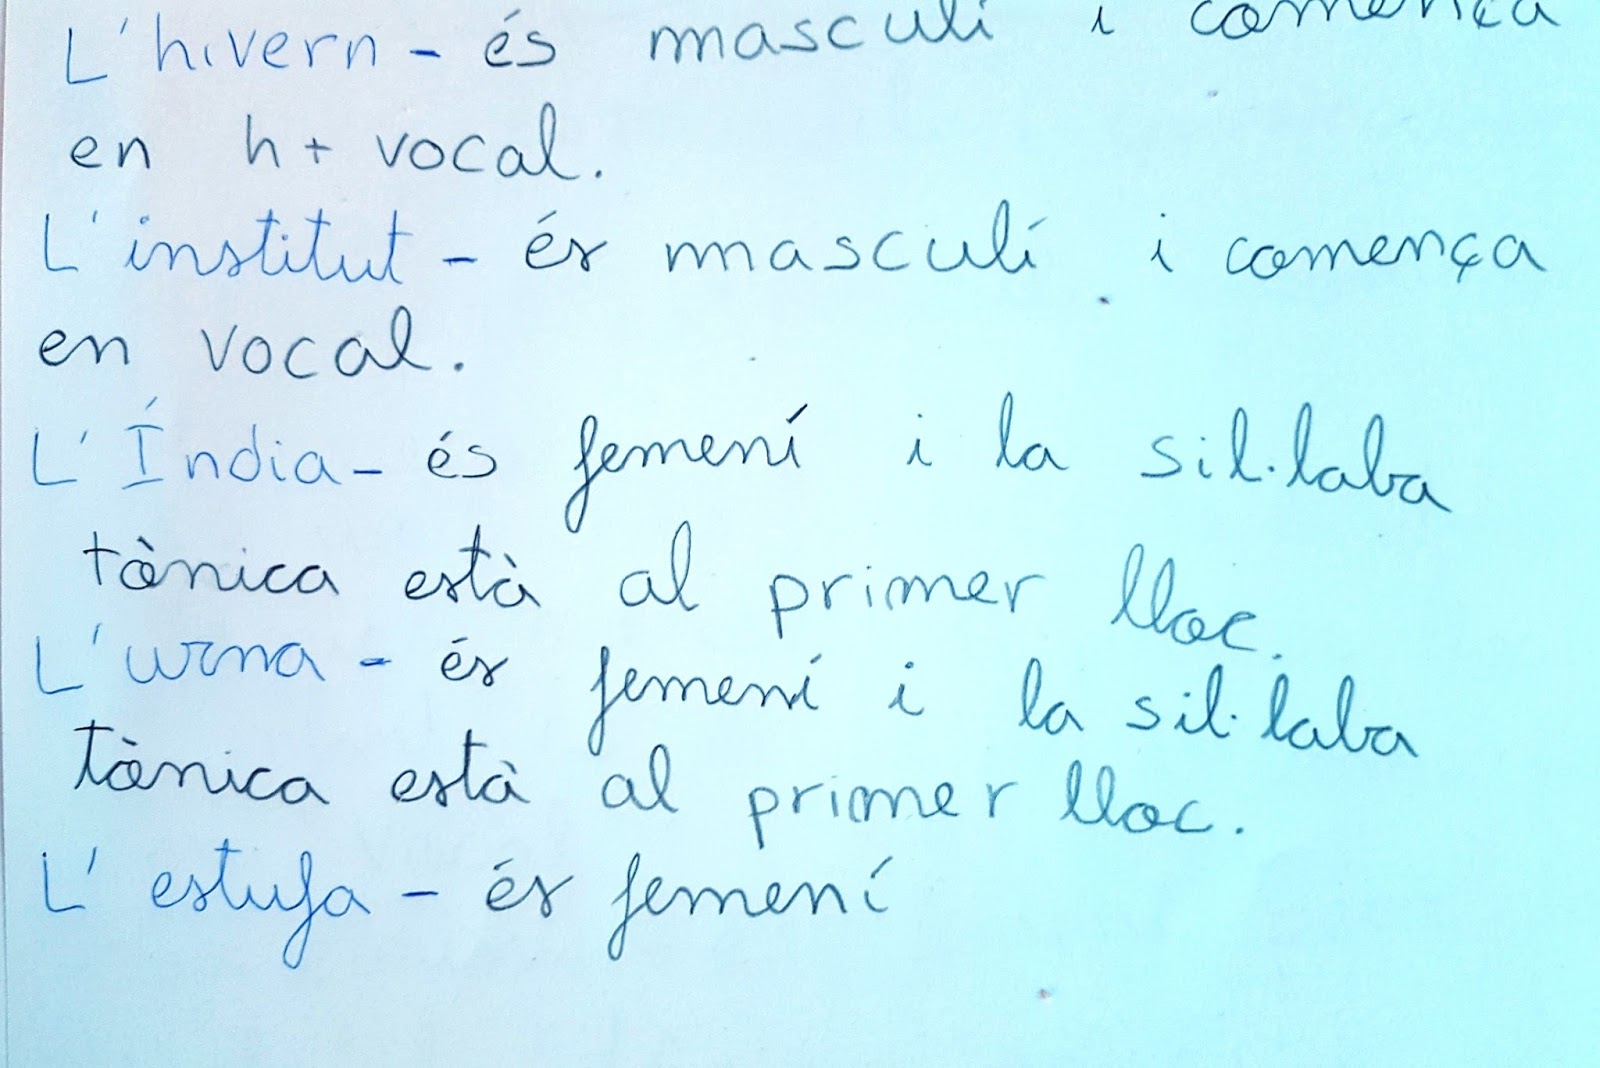 L'hivern - és masculí i comença
en h + vocal.
L'institut - és masculí i comença
en vocal.
L'Índia - és femení i la sil·laba
tònica està al primer lloc.
L'urna - és femení i la sil·laba
tònica està al primer lloc.
L'estufa - és femení